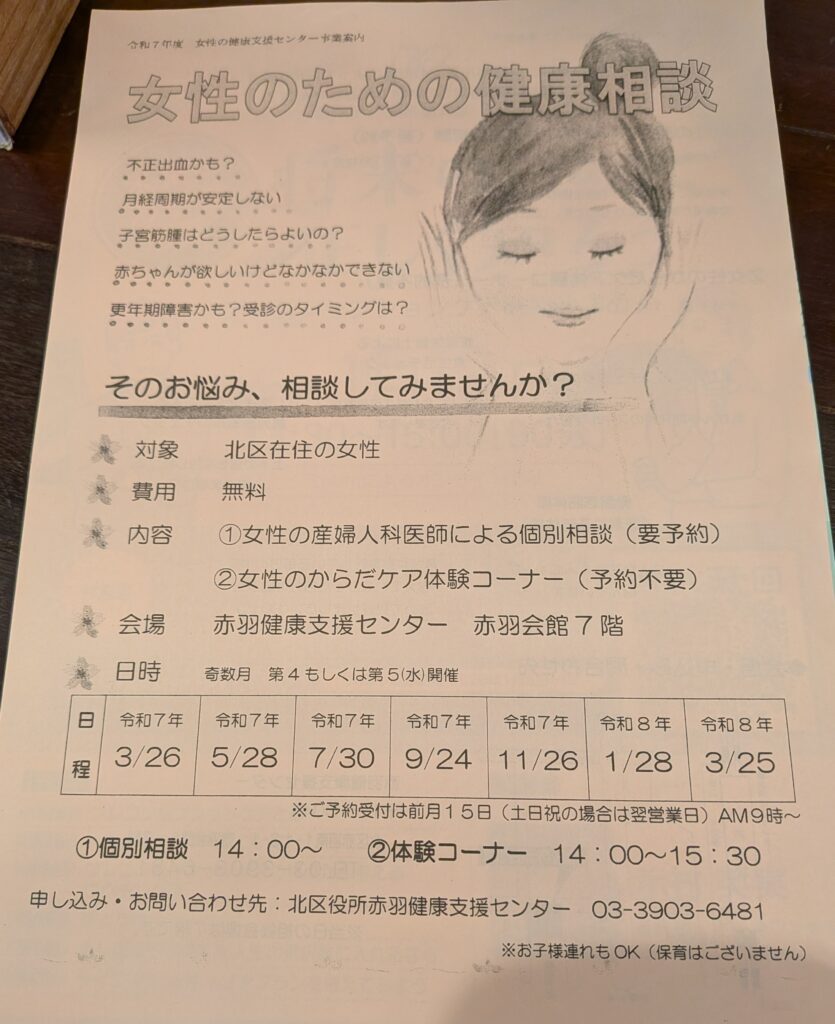 令和7年度 女性の健康支援センター事業案内
女性のための健康相談
不正出血かも？
月経周期が安定しない
子宮筋腫はどうしたらよいの？
赤ちゃんが欲しいけどなかなかできない
更年期障害かも？受診のタイミングは？
そのお悩み、相談してみませんか？
対象 北区在住の女性
費用 無料
内容 ①女性の産婦人科医師による個別相談（要予約）
②女性のからだケア体験コーナー（予約不要）
会場 赤羽健康支援センター 赤羽会館7階
日時 奇数月 第4もしくは第5(水)開催
日程 令和7年 令和7年 令和7年 令和7年 令和7年 令和8年 令和8年
3/26 5/28 7/30 9/24 11/26 1/28 3/25
※ご予約受付は前月15日（土日祝の場合は翌営業日）AM9時～
①個別相談 14：00～ ②体験コーナー 14：00～15：30
申し込み・お問い合わせ先：北区役所赤羽健康支援センター 03-3903-6481
※お子様連れもOK（保育はございません）